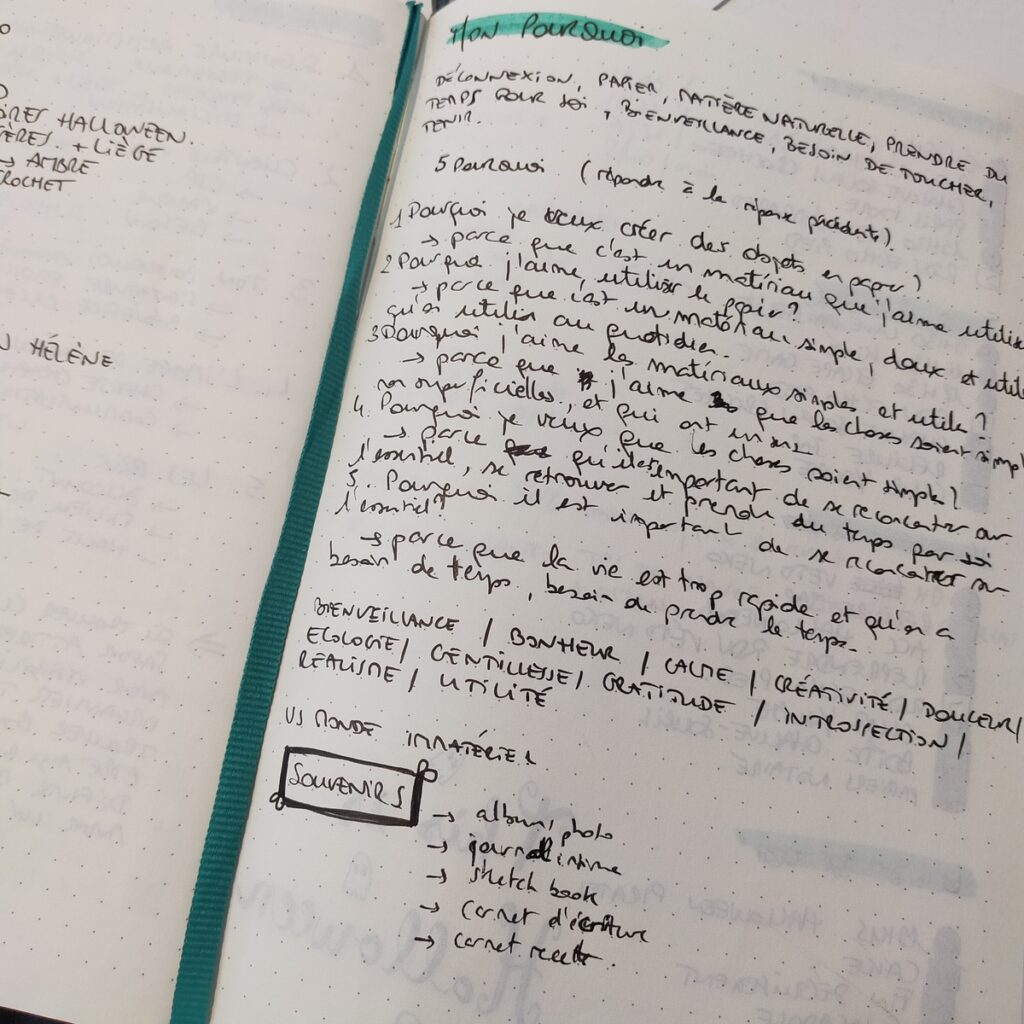 HALLOWEEN.
+ LIÈGE
→ AMBRE
HÉLÈNE
MON POURQUOI
DÉCONNEXION, PAPIER, MATIÈRE NATURELLE, PRENDRE DU
TEMPS POUR SOI, BIENVEILLANCE, BESOIN DE TOUCHER,
TENIR.
5 POURQUOI (répondre à la réponse précédente).
1 Pourquoi je veux créer des objets en papier?
→ parce que c'est un matériau que j'aime utiliser
2 Pourquoi j'aime utiliser le papier?
→ parce que c'est un matériau simple, doux et utile
qu'on utilise au quotidien.
3 Pourquoi j'aime les matériaux simples, et utile?
→ parce que j'aime que les choses soient simples
non superficielles, et qui ont un
4. Pourquoi je veux que les choses soient simple?
→ parce qu'il est important de se reconcentrer sur
l'essentiel, se retrouver et prendre du temps par soi
5. Pourquoi il est important de se reconcentrer sur
l'essentiel?
→ parce que la vie est trop rapide et qu'on a
besoin de temps, besoin de prendre le temps.
BIENVEILLANCE / BONHEUR / CALME / CRÉATIVITÉ / DOUCEUR/
ECOLOGIE/ GENTILLESSE/ GRATITUDE / INTROSPECTION/
RÉALISME/ UTILITÉ
VS MONDE IMMATÉRIEL
SOUVENIRS
→ album photo
→ journal intime
→ sketch book
→ carnet d'écriture
→ carnet recette.